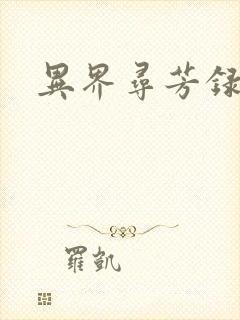 異界尋芳録
羅凱